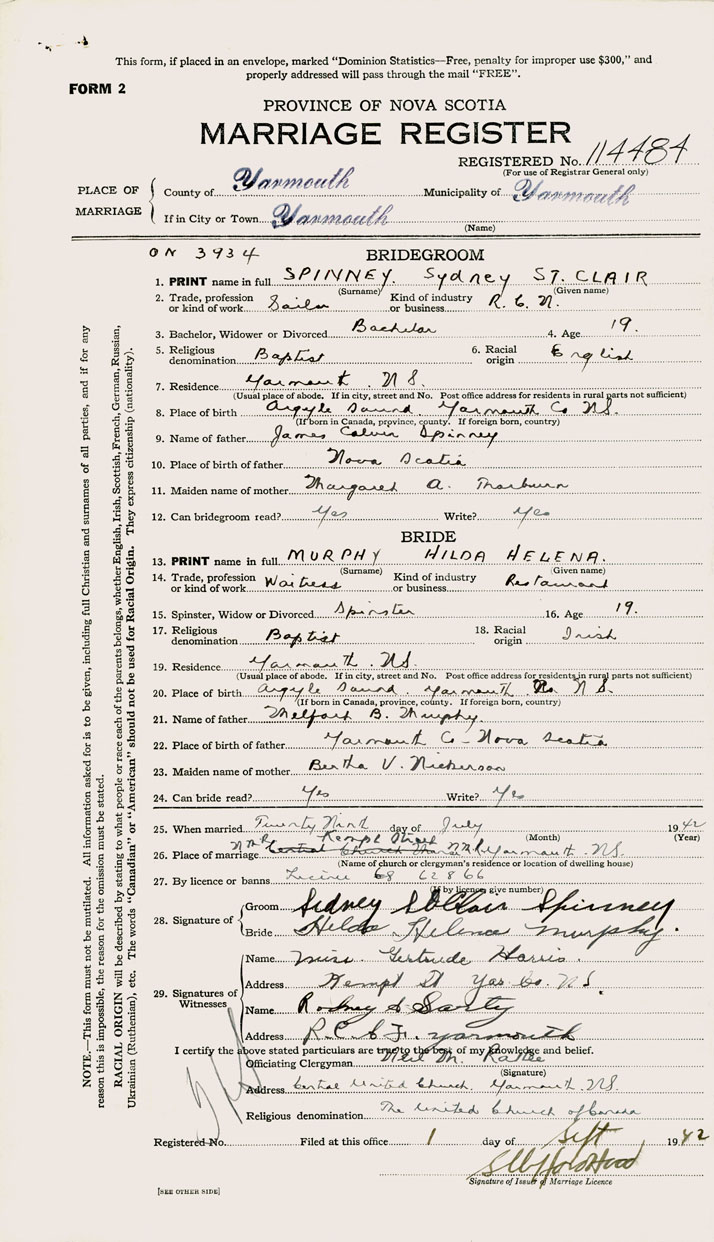 This form, if placed in an envelope, marked "Dominion Statistics—Free, penalty for improper use $300," and
properly addressed will pass through the mail "FREE".
FORM 2
PROVINCE OF NOVA SCOTIA
MARRIAGE REGISTER
REGISTERED No. 114484
(For use of Registrar General only)
PLACE OF MARRIAGE
County of Yarmouth Municipality of Yarmouth
If in City or Town Yarmouth
(Name)
ON 3934
BRIDEGROOM
1. PRINT name in full SPINNEY. Sydney ST. CLAIR
(Surname) (Given name)
2. Trade, profession or kind of work Sailor Kind of industry or business R.C.N.
3. Bachelor, Widower or Divorced Bachelor 4. Age 19.
5. Religious denomination Baptist 6. Racial origin English
7. Residence Yarmouth. N.S.
(Usual place of abode. If in city, street and No. Post office address for residents in rural parts not sufficient)
8. Place of birth Argyle Sound. Yarmouth Co N.S.
(If born in Canada, province, county. If foreign born, country)
9. Name of father James Calvin Spinney
10. Place of birth of father Nova Scotia
11. Maiden name of mother Margaret A. Thorburn
12. Can bridegroom read? Yes Write? Yes
BRIDE
13. PRINT name in full MURPHY HILDA HELENA.
(Surname) (Given name)
14. Trade, profession or kind of work Waitress Kind of industry or business Restaurant
15. Spinster, Widow or Divorced Spinster 16. Age 19.
17. Religious denomination Baptist 18. Racial origin Irish
19. Residence Yarmouth. N.S.
(Usual place of abode. If in city, street and No. Post office address for residents in rural parts not sufficient)
20. Place of birth Argyle Sound. Yarmouth N.S.
(If born in Canada, province, county. If foreign born, country)
21. Name of father B. Murphy.
22. Place of birth of father Yarmouth Co - Nova Scotia
23. Maiden name of mother Bertha V. Nickerson
24. Can bride read? Yes Write? Yes
25. When married Twenty Ninth day of July 1942
(Month) (Year)
Kempt Street
26. Place of marriage Central Church Yarmouth. N.S.
(Name of church or clergyman's residence or location of dwelling house)
27. By licence or banns License 68 62866
(If by licence, give number)
28. Signature of
Groom Sidney St Clair Spinney
Bride Hilda Helena Murphy.
29. Signatures of Witnesses
Name Miss Gertrude Harris.
Address Kempt St Yar. Co. N.S.
Name Rodney
Address R.C.A.F. Yarmouth
I certify the above stated particulars are true to the best of my knowledge and belief.
Officiating Clergyman
(Signature)
Address Central United Church, Yarmouth. N.S.
Religious denomination The United Church of Canada
Registered No. Filed at this office 1 day of Sept 1942
Signature of Issuer of Marriage Licence
[SEE OTHER SIDE]
NOTE.—This form must not be mutilated. All information asked for is to be given, including full Christian and surnames of all parties, and if for any
reason this is impossible, the reason for the omission must be stated.
RACIAL ORIGIN will be described by stating to what people or race each of the parents belongs, whether English, Irish, Scottish, French, German, Russian,
Ukrainian (Ruthenian), etc. The words "Canadian" or "American" should not be used for Racial Origin. They express citizenship (nationality).